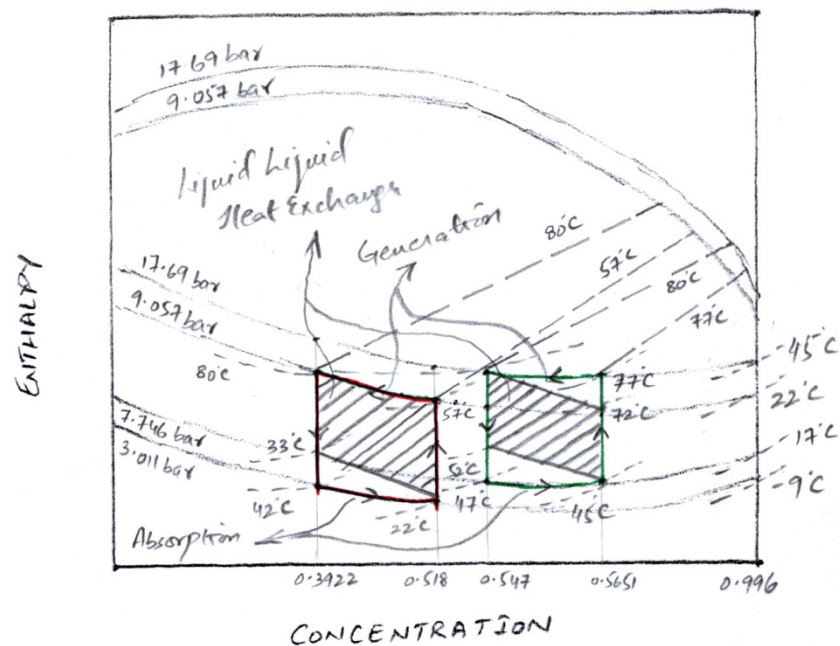 17.69 bar
9.057 bar
Liquid Liquid
Heat Exchange
Generation
80°C
57°C
80°C
77°C
17.69 bar
9.057 bar
80°C
7.746 bar
3.011 bar
33°C
42°C
22°C
57°C
52°C
47°C
77°C
72°C
45°C
45°C
22°C
17°C
9°C
Absorption
0.3922
0.518
0.547
0.5651
0.996
ENTHALPY
CONCENTRATION